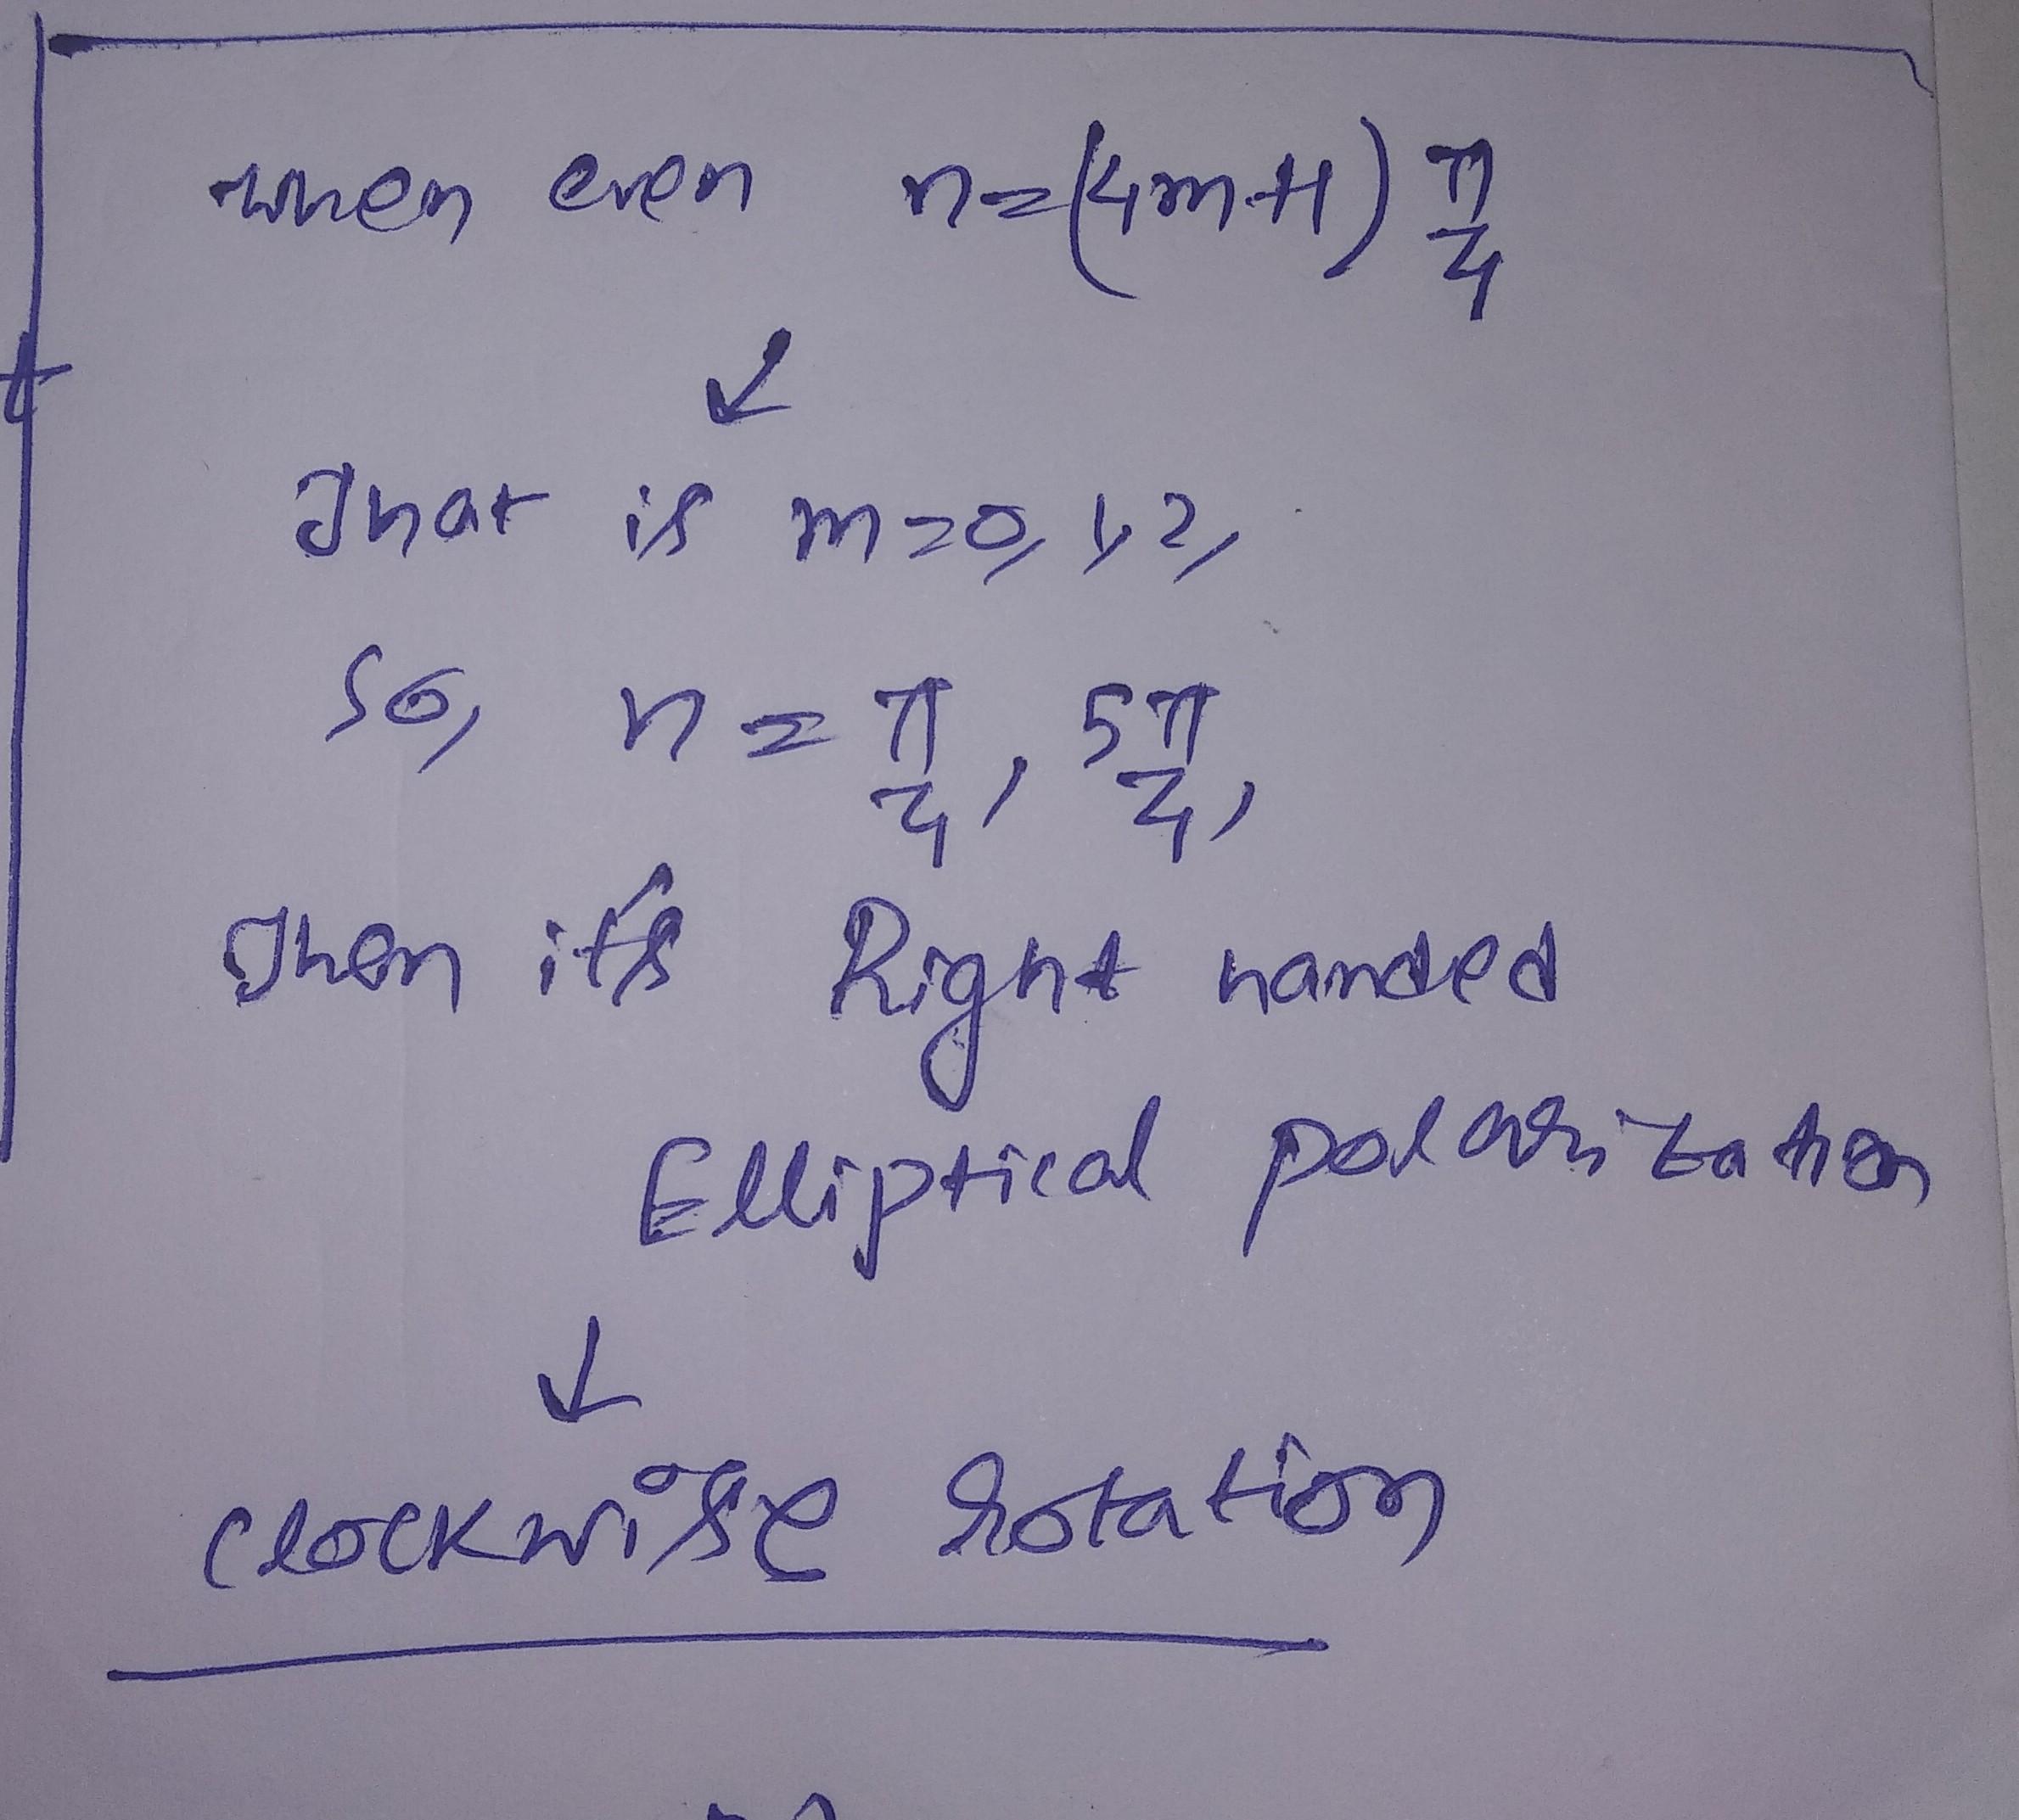 when even n=(4m+1) π/4
↓
That is m=0, 1, 2,
So, n = π/4, 5π/4,
Then it's Right handed
Elliptical polarization
↓
clockwise rotation